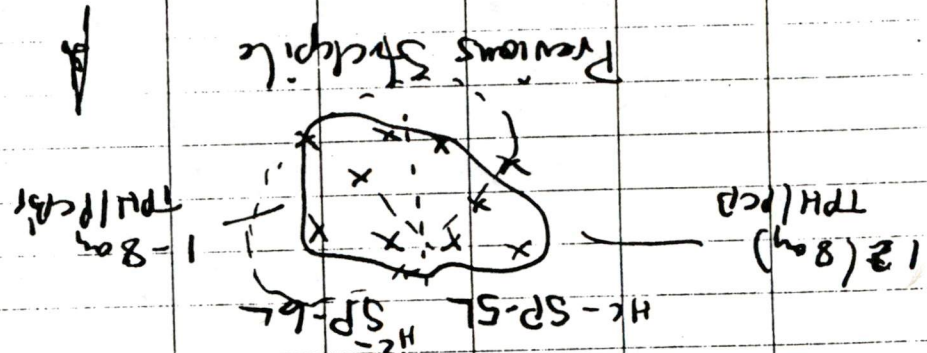 HC-SP-5L
HC-SP-6L
(8oz)
TPH/PCB
1 - 8oz
TPH/PCBs
Previous Stockpile